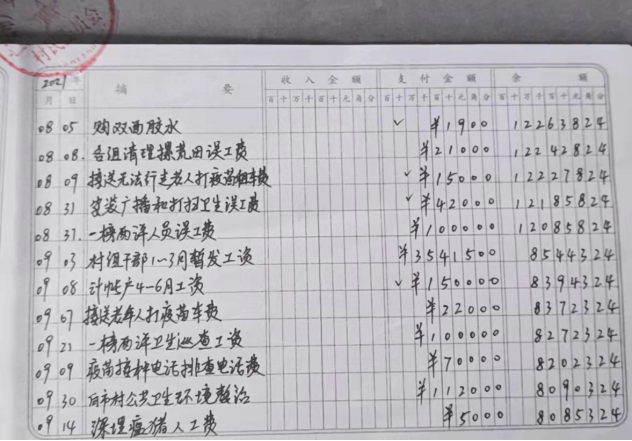 村民委员会
2021年 摘 要 收入金额 支付金额 余 额
月 日 百十万千百十元角分 百十万千百十元角分 百十万千百十元角分
08 05 购双面胶水 ¥1900 12263824
08 08. 各组清理撂荒田误工费 ¥21000 12242824
08 09 接送无法行走老人打疫苗租车费 ¥15000 12227824
08 31 安装广播和打扫卫生误工费 ¥42000 12185824
08 31. 一榜两评人员误工费 ¥100000 12085824
09 03 村组干部1~3月暂发工资 ¥3541500 8544324
09 08 计生户4-6月工资 ¥150000 8394324
09 07 接送老年人打疫苗车费 ¥22000 8372324
09 21 一榜两评卫生巡查工资 ¥100000 8272324
09 09 疫苗接种电话排查电话费 ¥70000 8202324
09 30 向市村公共卫生环境整治 ¥112000 8090324
09 14 深埋瘟猪人工费 ¥5000 8085324